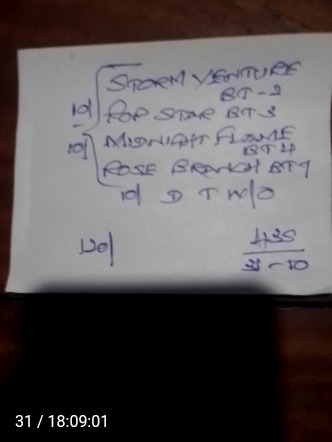 STORM VENTURE
BT-2
10/ POP STAR BT3
10/ MIDNIGHT FLAME
BT4
ROSE BRANCH BT1
10/ D T W/O
120/
435
31-10
31 / 18:09:01